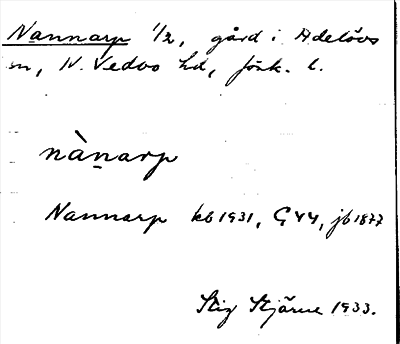 Nannarp 1/2, gård i Adelövs
sn, N. Vedbo hd, Jönk. l.
nànarp
Nannarp kb 1931, G44, jb 1877
Stig Stjärne 1933.